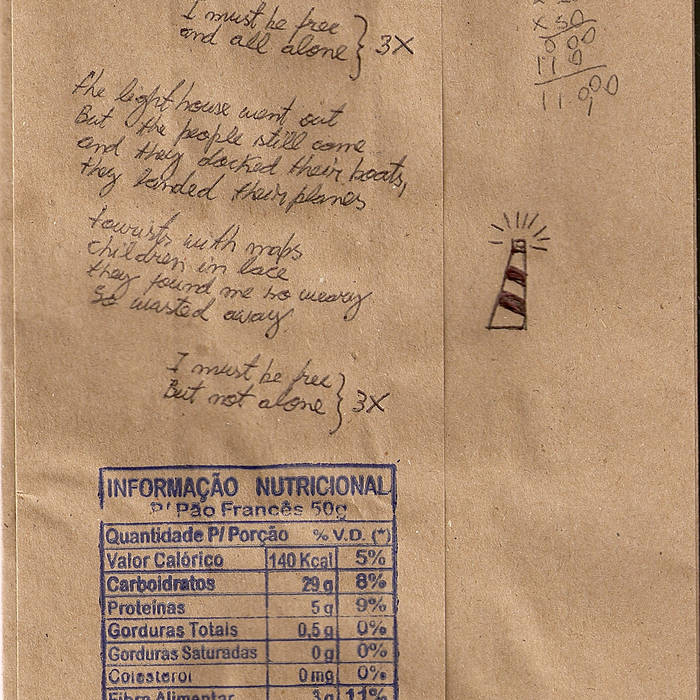 I must be free
and all alone } 3X
x 50
000
11 0
11.000
The lighthouse went out
But the people still come
and they docked their boats,
they landed their planes
tourists with maps
children in lace
they found me so weary
so wasted away
I must be free
But not alone } 3X
INFORMAÇÃO NUTRICIONAL
P/ Pão Francês 50g
Quantidade P/ Porção % V.D. (*)
Valor Calórico 140 Kcal 5%
Carboidratos 29 g 8%
Proteínas 5 g 9%
Gorduras Totais 0,5 g 0%
Gorduras Saturadas 0 g 0%
Colesterol 0 mg 0%
Fibra Alimentar 3 g 11%